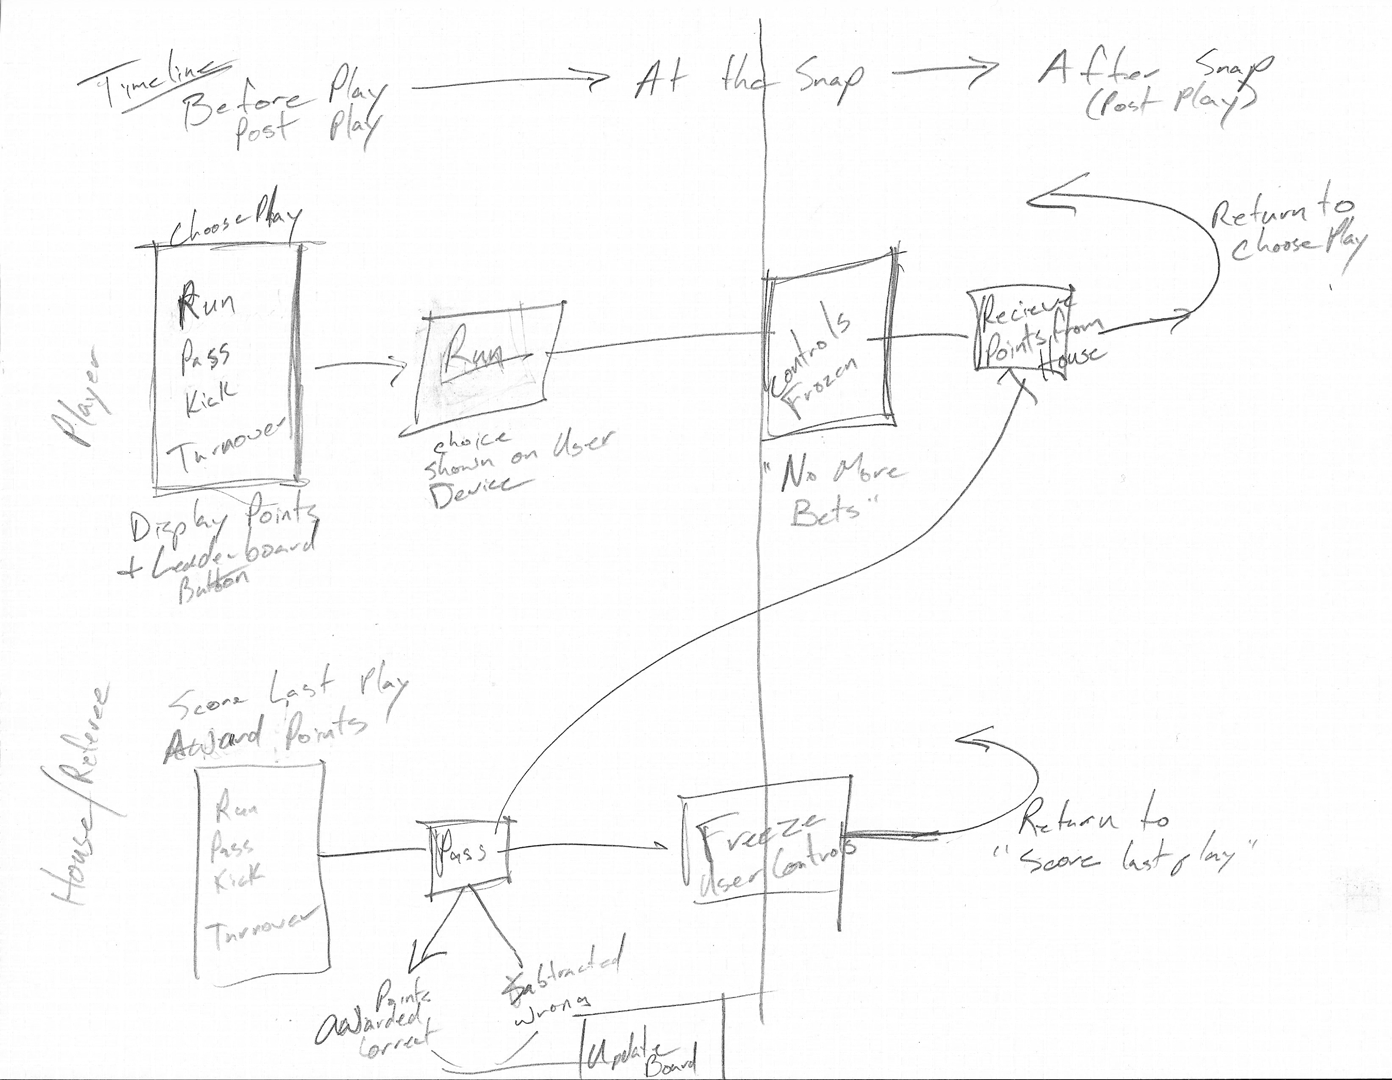 Timeline
Before Play
Post Play
At the Snap
After Snap
(Post Play)
Player
Choose Play
Run
Pass
Kick
Turnover
Display Points
+ Leaderboard
Button
Run
choice
shown on User
Device
Controls
Frozen
"No More
Bets"
Recieve
Points from
House
Return to
Choose Play
House/Referee
Score Last Play
Award Points
Run
Pass
Kick
Turnover
Pass
Points
awarded
correct
Subtracted
wrong
Update
Board
Freeze
User Controls
Return to
"Score last play"